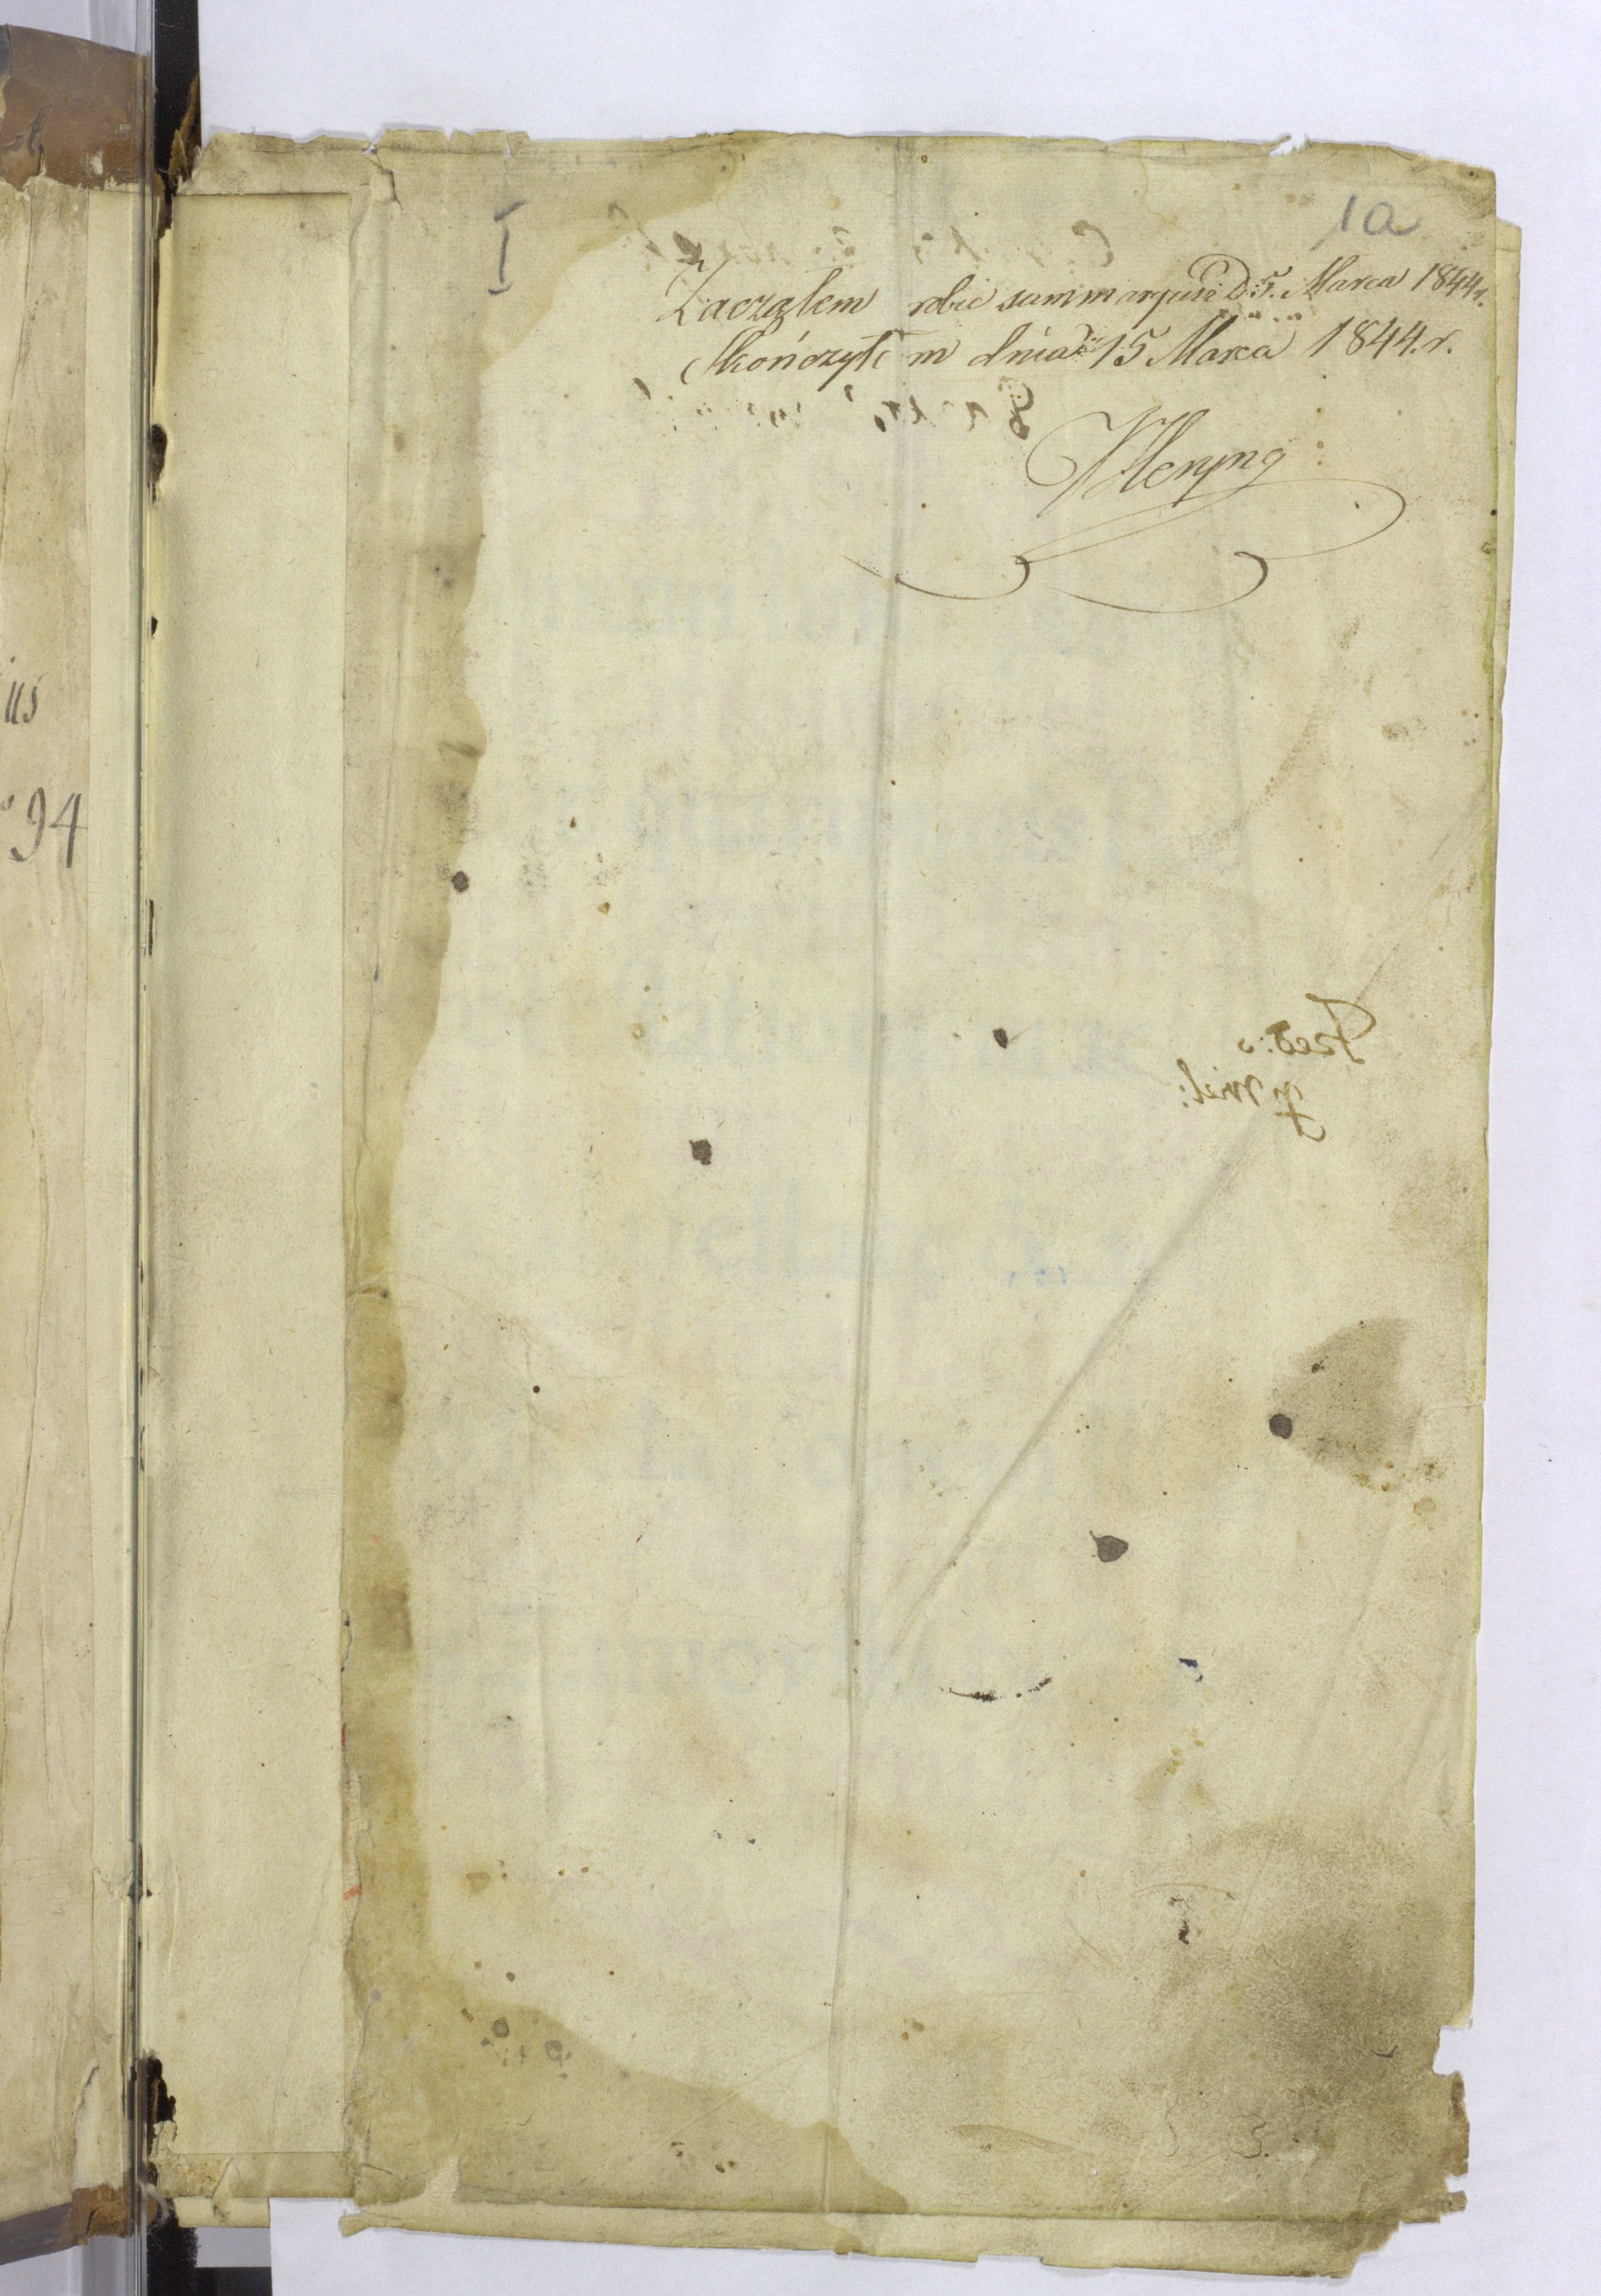 us
94
I
1a
Zacząłem robić summaryusz D 5. Marca 1844 r.
Skończyłem dnia 15 Marca 1844. r.
Heryng